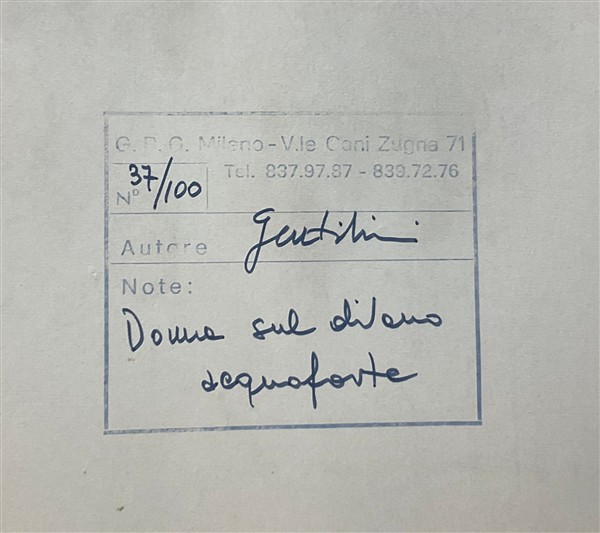 G. D. G. Milano - V.le Coni Zugna 71
N° 37/100 Tel. 837.97.87 - 839.72.76
Autore Gentilini
Note:
Donna sul divano
acquaforte